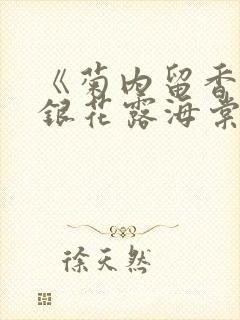 《菊内留香
银花露海棠
徐天然